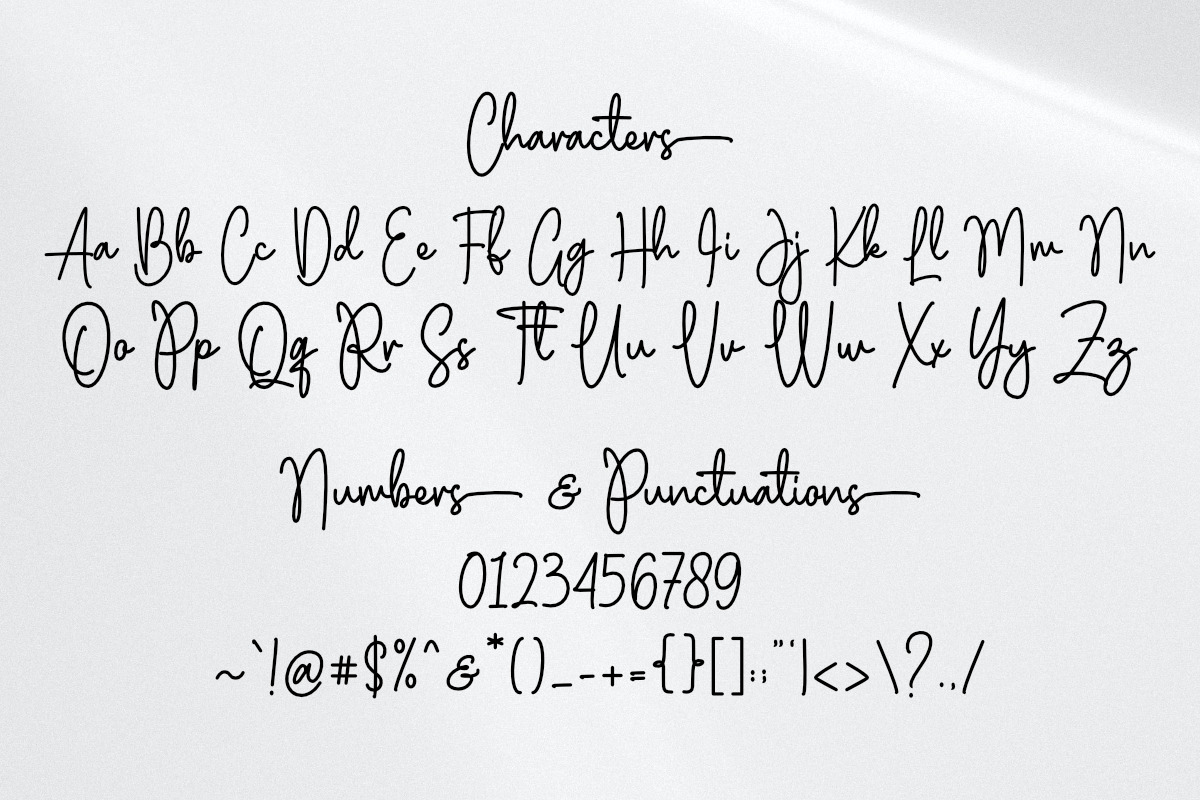 Characters
Aa Bb Cc Dd Ee Ff Gg Hh Ii Jj Kk Ll Mm Nn
Oo Pp Qq Rr Ss Tt Uu Vv Ww Xx Yy Zz
Numbers & Punctuations
0123456789
~`!@#$%^&*()_-+={}[]:;"'|<>\?.,/